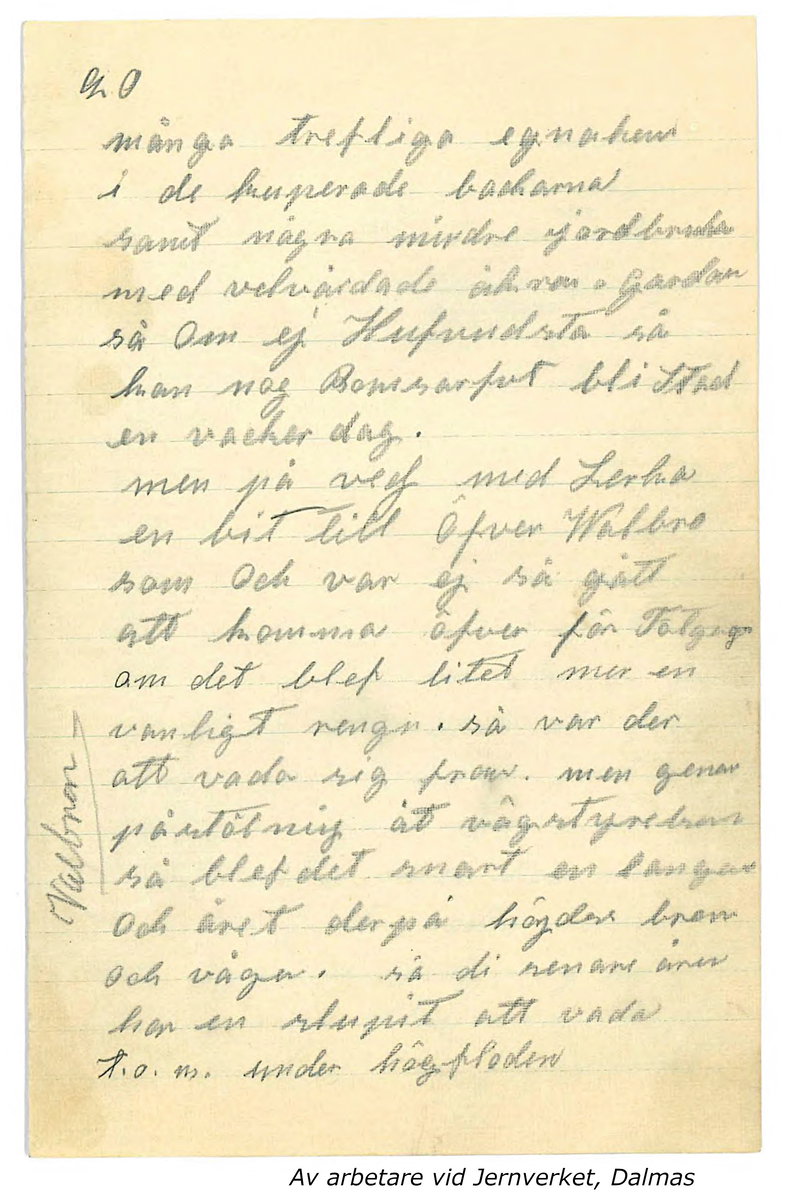 90
många trefliga egnahem
i de kuperade backarna
samt några mindre jordbruk
med velvårdade åkrar o gardar
så Om ej Hufvudsta så
kan nog Bomsarfvet bli Stad
en vacker dag.
men på veg med Lerka
en bit till Öfver Walbro
som Och var ej så gått
att komma öfver för
om det blef litet mer en
vanligt rengn. så var der
att vada sig fram. men genom
påstötnig åt vägstyrelsen
så blef det snart en
Och året derpå höjdes bron
och vägen. så di senare åren
har en slupit att vada
t.o.m. under högfloden
Valbron
Av arbetare vid Jernverket, Dalmas